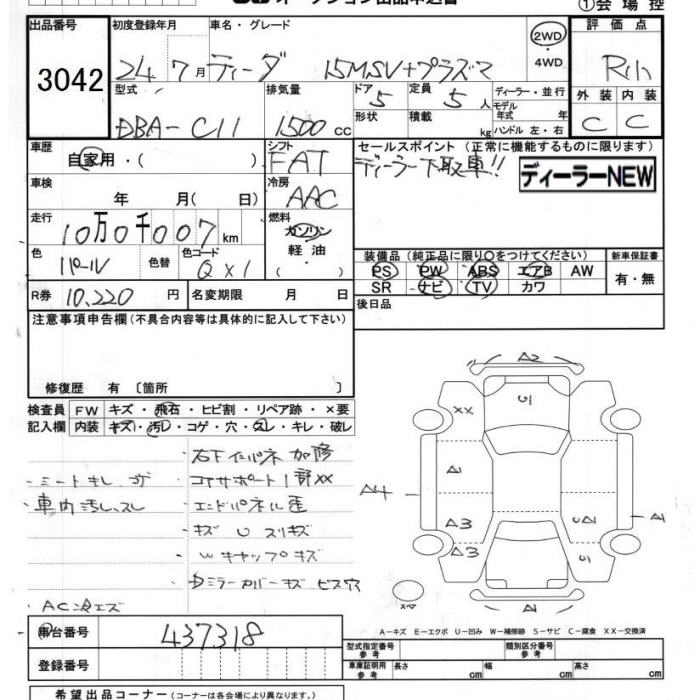 オークション出品申込書
①会場控
出品番号 初度登録年月 車名・グレード 2WD・4WD 評価点
3042 24年7月 ティーダ 15MSV+プラズマ
型式 排気量 ドア 5 定員 5人 ディーラー・並行 外装 内装
DBA-C11 1500cc 形状 積載 kg モデル年式 年 ハンドル 左・右 C C
車歴 シフト セールスポイント(正常に機能するものに限ります)
自家用・( ) FAT ディーラー下取車!! ディーラーNEW
車検 冷房
年 月( 日) AAC
走行 燃料
10万0千007km ガソリン
軽油・
( )
色 色替 色コード
パール QX1
装備品(純正品に限り○をつけてください) 新車保証書
PS PW ABS エアB AW 有・無
SR ナビ TV カワ
R券 10,220円 名変期限 月 日 後日品
注意事項申告欄(不具合内容等は具体的に記入して下さい)
修復歴 有 〔箇所 〕
検査員 FW キズ・飛石・ヒビ割・リペア跡・×要
記入欄 内装 キズ・汚レ・コゲ・穴・スレ・キレ・破レ
・右下インパネ加修
・シートキレ コゲ ・コアサポート1部XX
・車内汚レ、スレ ・エンドパネル歪
・キズ U スリキズ
・Wキャップキズ
・Dミラーカバーキズ ビス穴
・AC冷エズ
A2
U1
XX
A1
A4
A3
A3
U1
A1
スペ
A-キズ E-エクボ U-凹み W-補修跡 S-サビ C-腐食 XX-交換済
車台番号 437318
登録番号
型式指定番号 参考 類別区分番号 参考
車庫証明用 参考 長さ cm 幅 cm 高さ cm
希望出品コーナー(コーナーは各会場により異なります。)